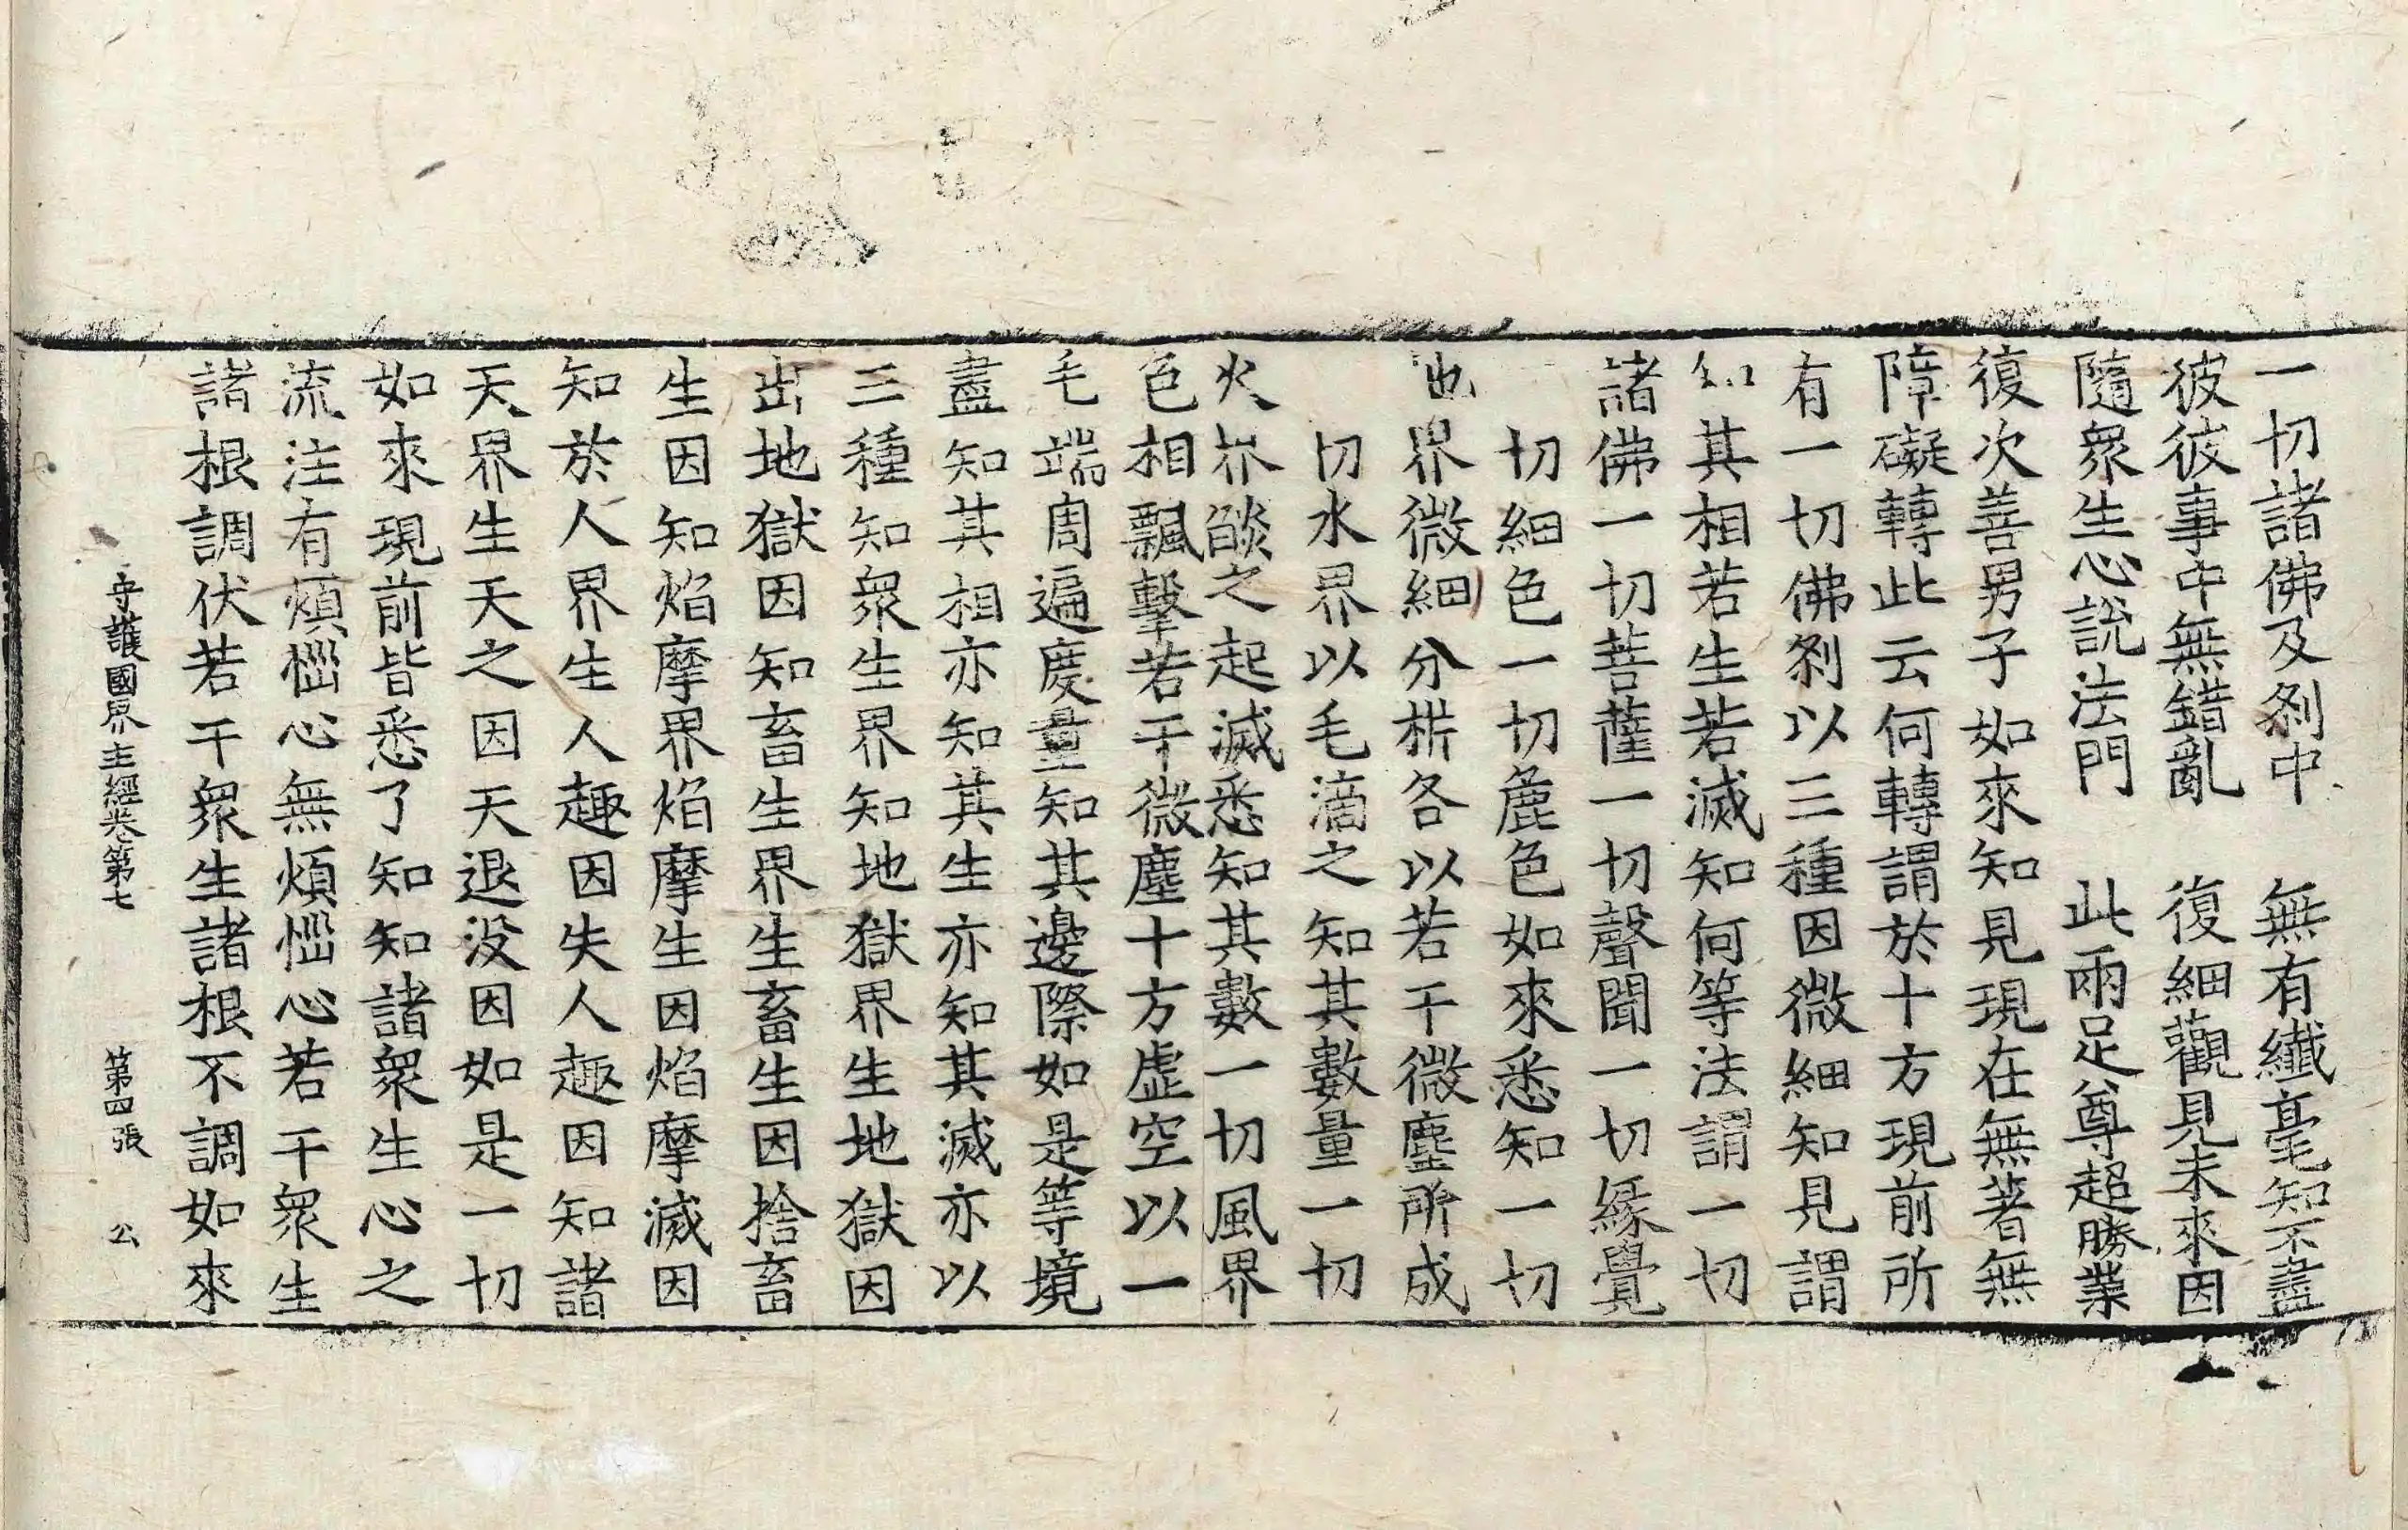 一切諸佛及剎中　無有纖毫知不盡
彼彼事中無錯亂　復細觀見未來因
隨衆生心說法門　此兩足尊超勝業
復次善男子如來知見現在無著無
障礙轉此云何轉謂於十方現前所
有一切佛剎以三種因微細知見謂
知其相若生若滅知何等法謂一切
諸佛一切菩薩一切聲聞一切緣覺
切細色一切麁色如來悉知一切
地界微細分析各以若干微塵所成
切水界以毛滴之知其數量一切
火界燄之起滅悉知其數一切風界
色相飄擊若干微塵十方虛空以一
毛端周遍度量知其邊際如是等境
盡知其相亦知其生亦知其滅亦以
三種知衆生界知地獄界生地獄因
出地獄因知畜生界生畜生因捨畜
生因知焰摩界焰摩生因焰摩滅因
知於人界生人趣因失人趣因知諸
天界生天之因天退沒因如是一切
如來現前皆悉了知知諸衆生心之
流注有煩惱心無煩惱心若干衆生
諸根調伏若干衆生諸根不調如來
守護國界主經卷第七　第四張　公